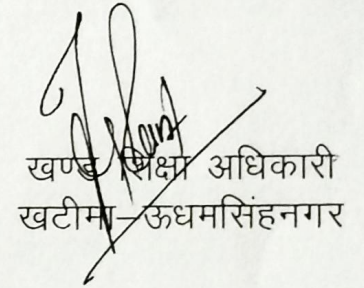 खण्ड शिक्षा अधिकारी
खटीमा–ऊधमसिंहनगर